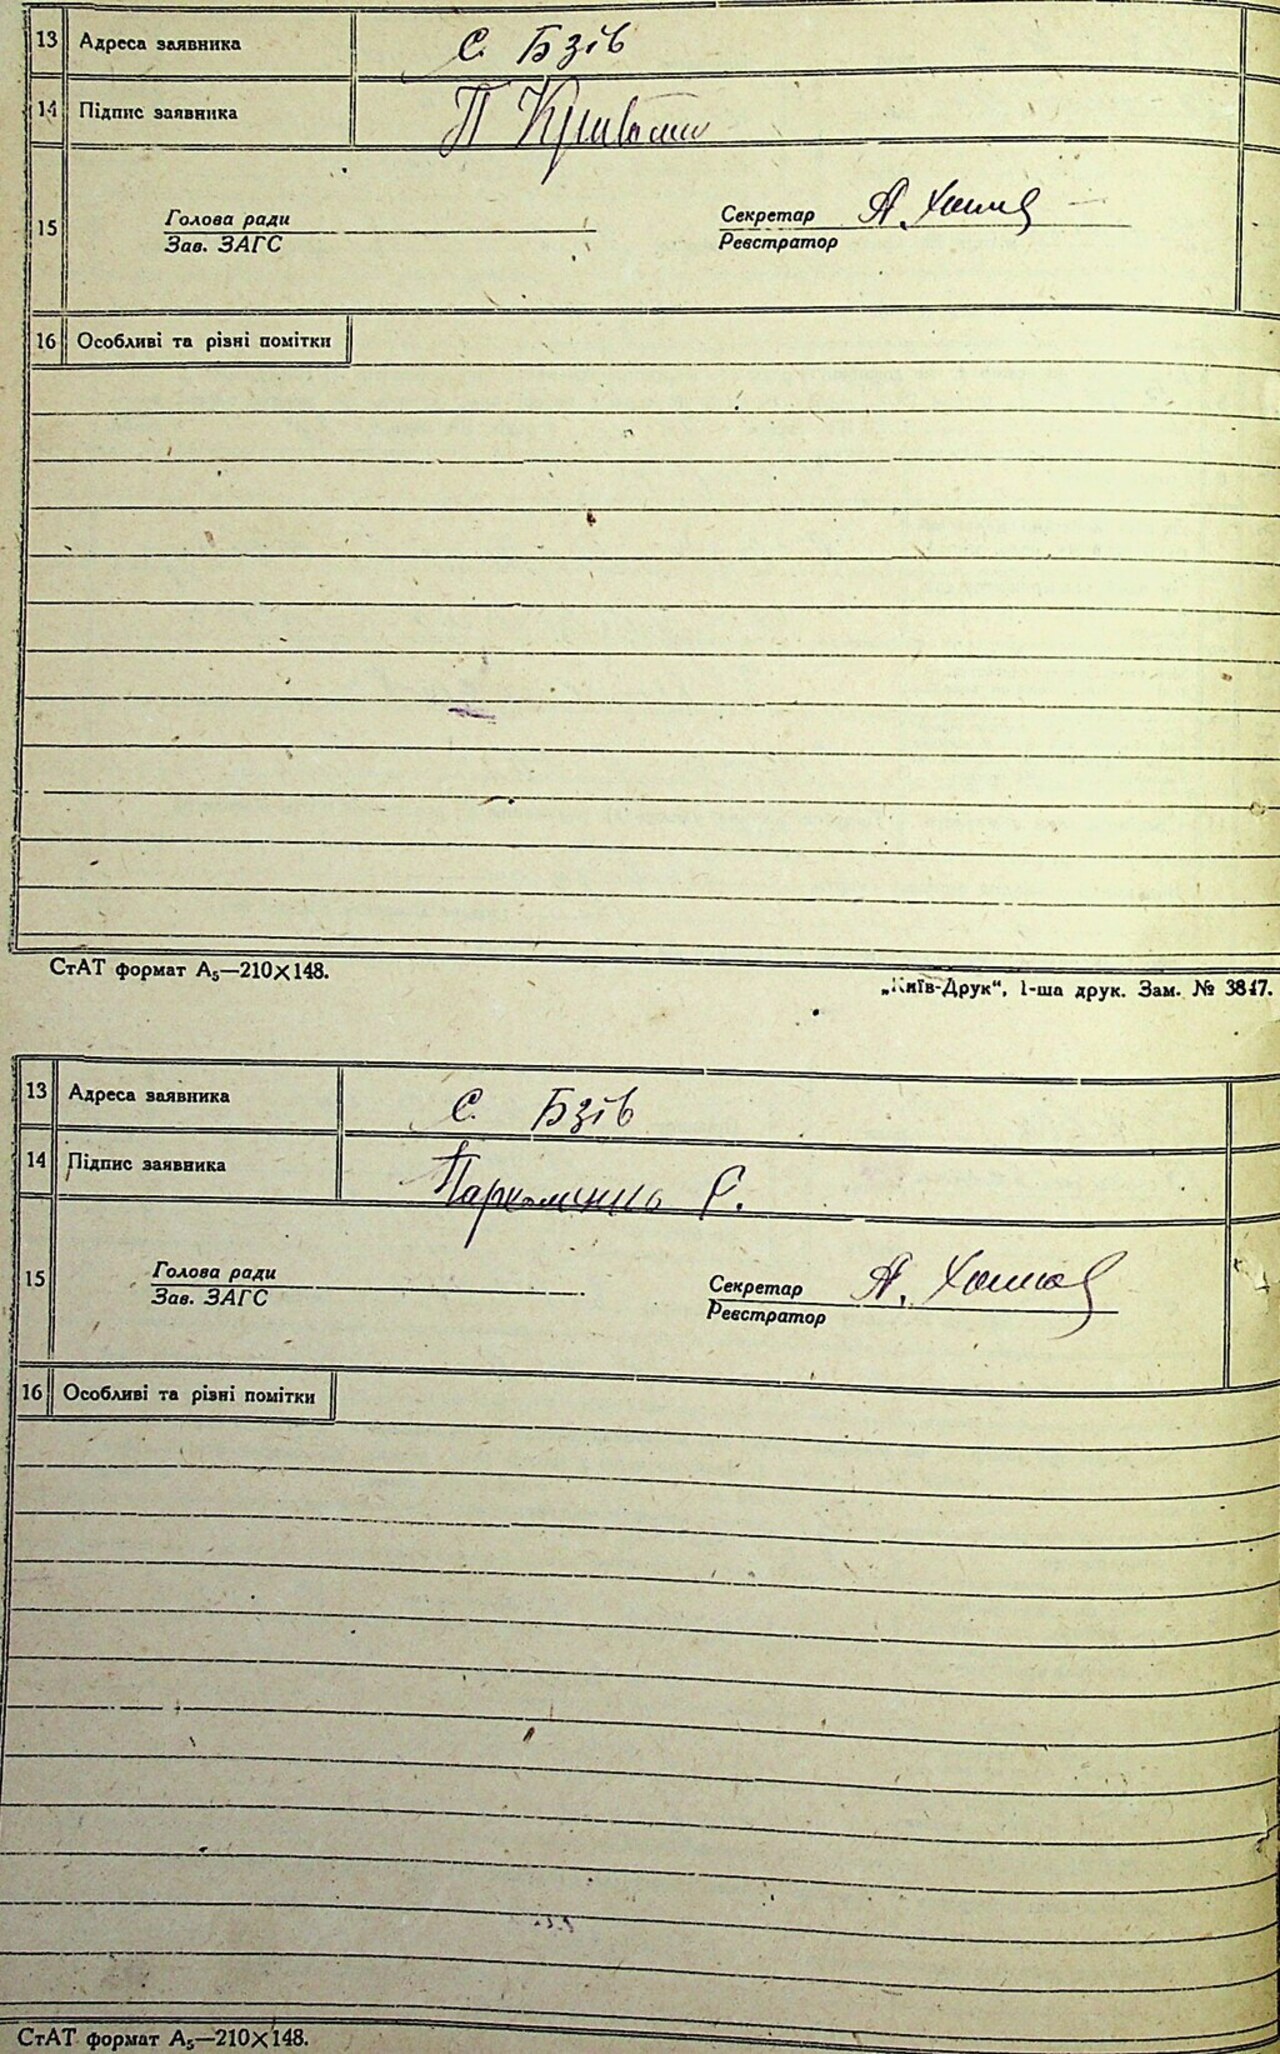 13 Адреса заявника с. Бзів
14 Підпис заявника П
15 Голова ради Секретар А.
Зав. ЗАГС Реєстратор
16 Особливі та різні помітки
СтАТ формат А₅—210×148.
„Київ-Друк“, 1-ша друк. Зам. № 3847.
13 Адреса заявника с. Бзів
14 Підпис заявника
15 Голова ради Секретар А.
Зав. ЗАГС Реєстратор
16 Особливі та різні помітки
СтАТ формат А₅—210×148.